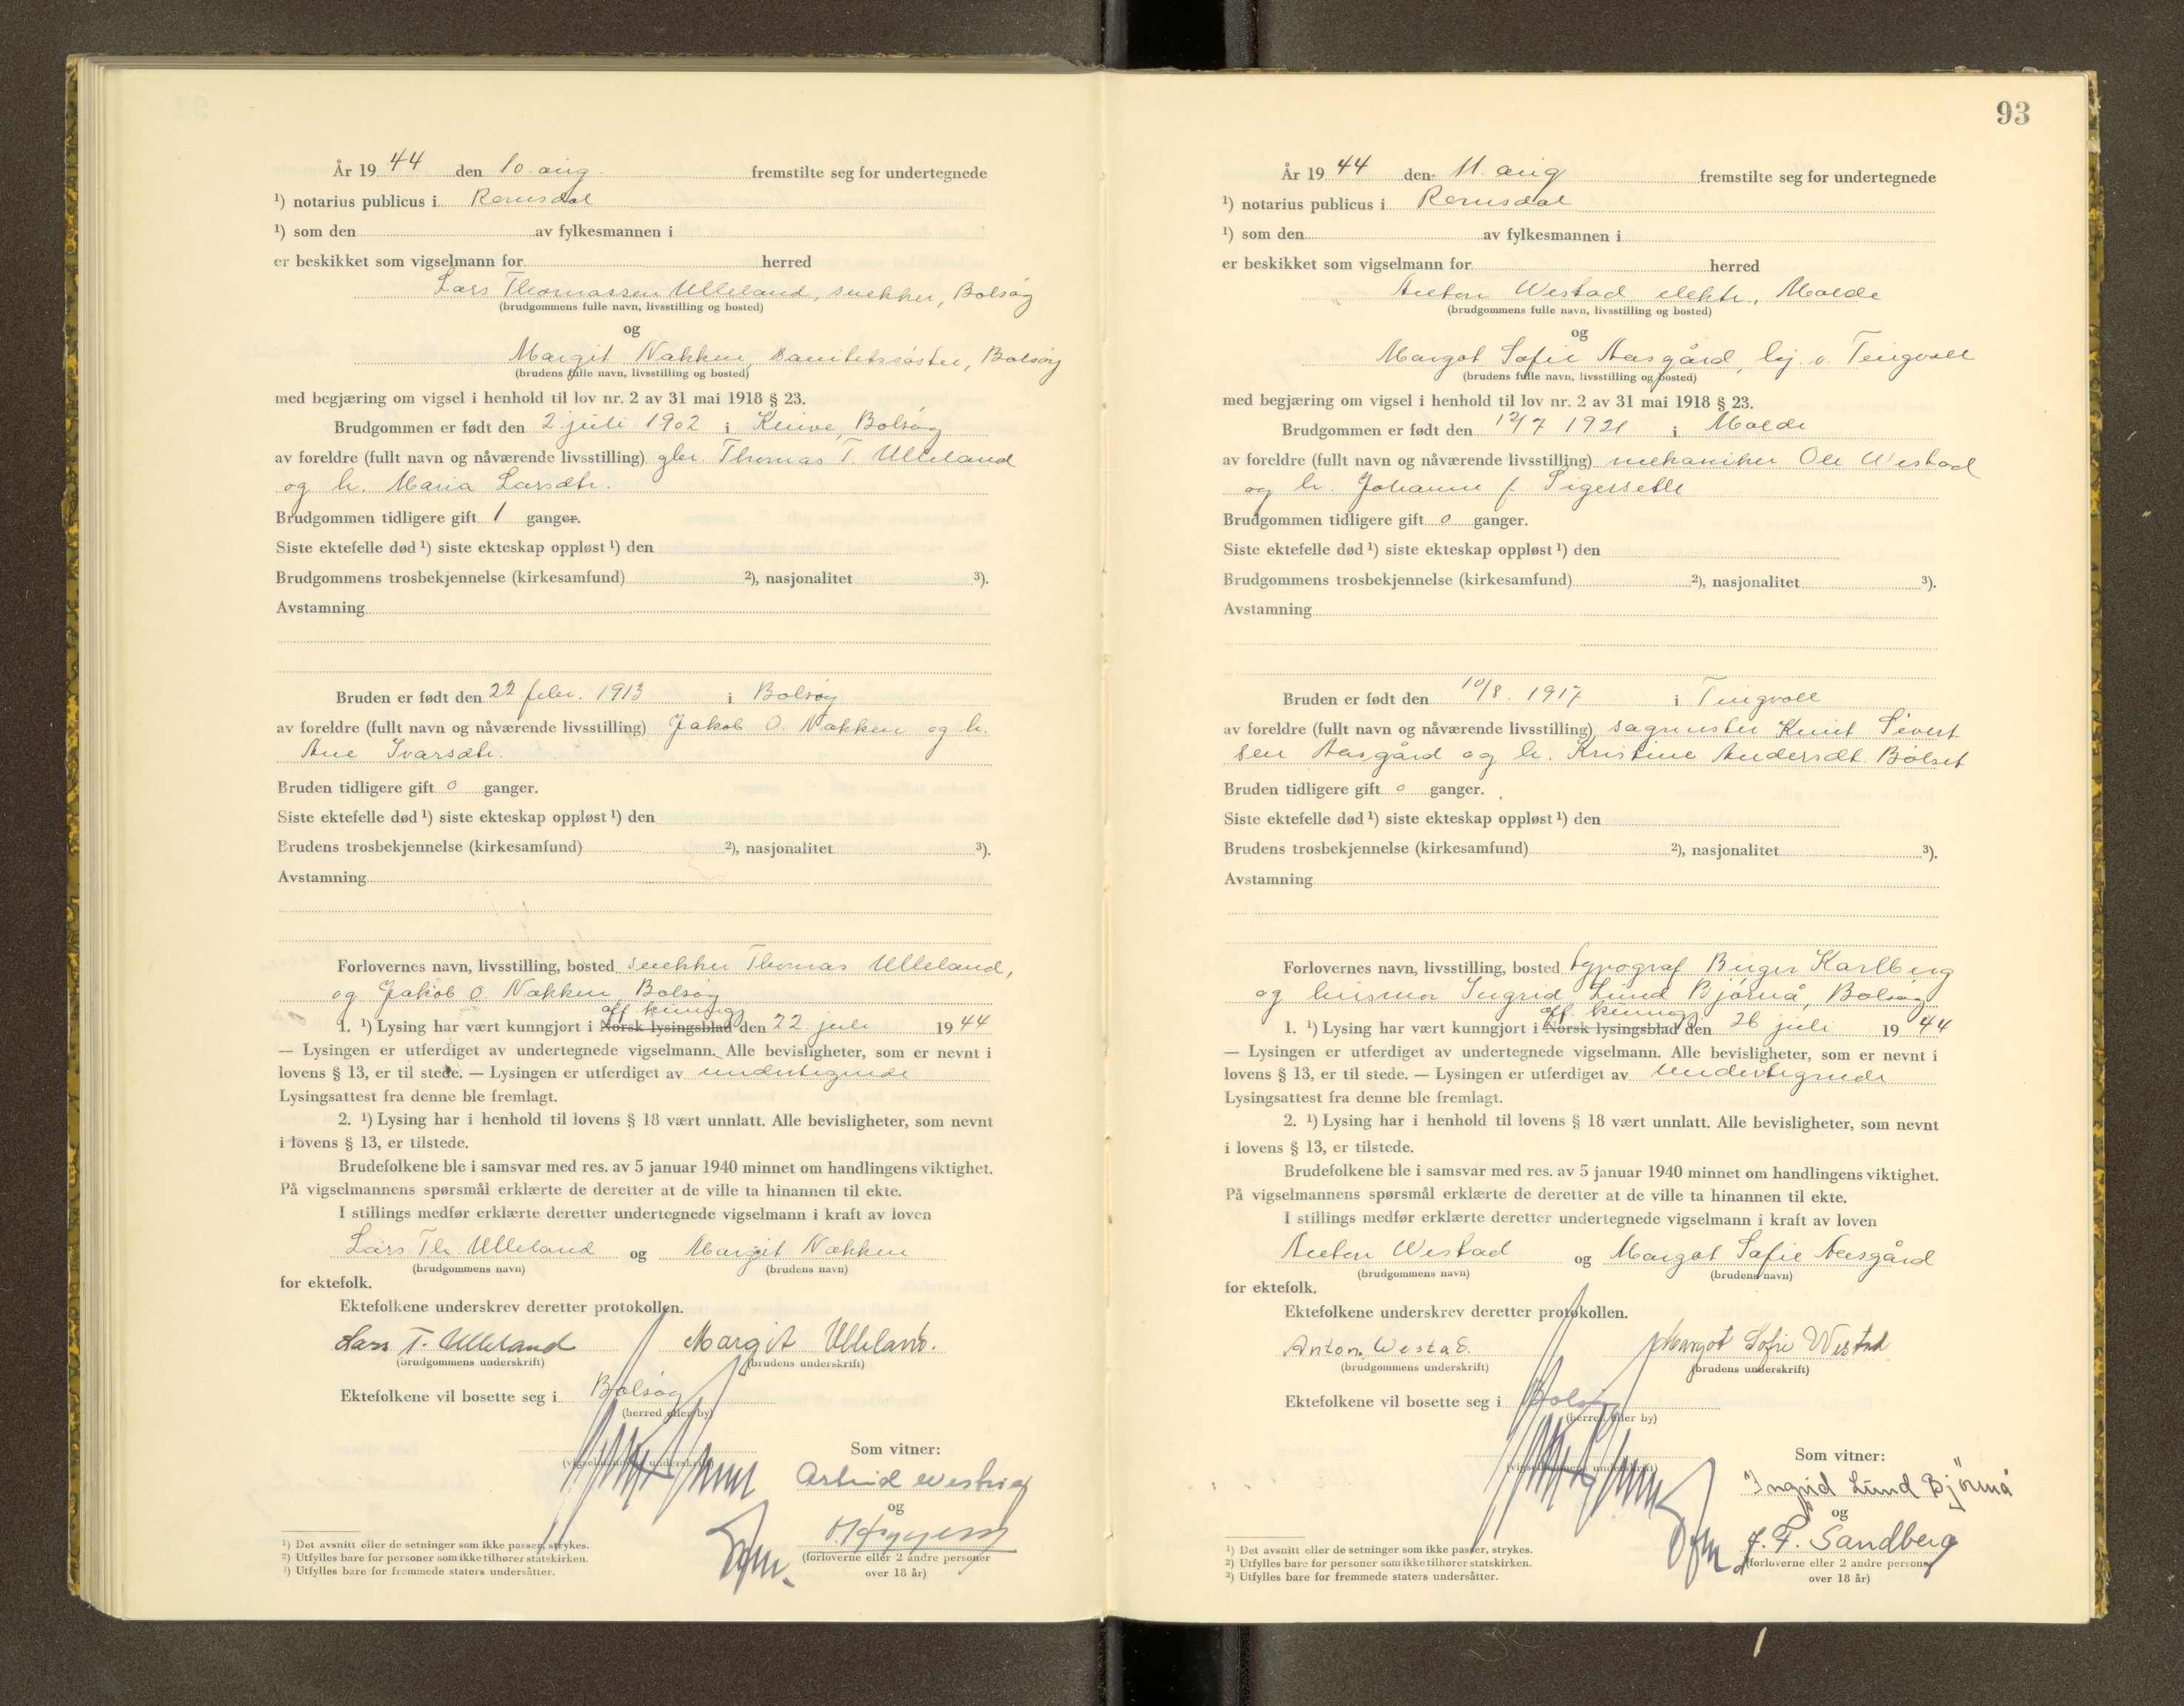 År 1944 den 10. aug. fremstilte seg for undertegnede
¹) notarius publicus i Romsdal
¹) som den av fylkesmannen i
er beskikket som vigselmann for herred
Lars Thomassen Ulleland, snekker, Bolsøy
(brudgommens fulle navn, livsstilling og bosted)
og
Margit Nakken, sanitetssøster, Bolsøy
(brudens fulle navn, livsstilling og bosted)
med begjæring om vigsel i henhold til lov nr. 2 av 31 mai 1918 § 23.
Brudgommen er født den 2 juli 1902 i Kleive, Bolsøy
av foreldre (fullt navn og nåværende livsstilling) gbr. Thomas T. Ulleland
og h. Maria Larsdtr.
Brudgommen tidligere gift 1 ganger.
Siste ektefelle død ¹) siste ekteskap oppløst ¹) den
Brudgommens trosbekjennelse (kirkesamfund) ²), nasjonalitet ³).
Avstamning
Bruden er født den 22 febr. 1913 i Bolsøy
av foreldre (fullt navn og nåværende livsstilling) Jakob O. Nakken og h.
Ane Ivarsdtr.
Bruden tidligere gift 0 ganger.
Siste ektefelle død ¹) siste ekteskap oppløst ¹) den
Brudens trosbekjennelse (kirkesamfund) ²), nasjonalitet ³).
Avstamning
Forlovernes navn, livsstilling, bosted snekker Thomas Ulleland,
og Jakob O. Nakken, Bolsøy
off. kunngj
1. ¹) Lysing har vært kunngjort i Norsk lysingsblad den 22 juli 1944
— Lysingen er utferdiget av undertegnede vigselmann. Alle bevisligheter, som er nevnt i
lovens § 13, er til stede. — Lysingen er utferdiget av undertegnede
Lysingsattest fra denne ble fremlagt.
2. ¹) Lysing har i henhold til lovens § 18 vært unnlatt. Alle bevisligheter, som nevnt
i lovens § 13, er tilstede.
Brudefolkene ble i samsvar med res. av 5 januar 1940 minnet om handlingens viktighet.
På vigselmannens spørsmål erklærte de deretter at de ville ta hinannen til ekte.
I stillings medfør erklærte deretter undertegnede vigselmann i kraft av loven
Lars Th. Ulleland og Margit Nakken
(brudgommens navn) (brudens navn)
for ektefolk.
Ektefolkene underskrev deretter protokollen.
Lars T. Ulleland Margit Ulleland.
(brudgommens underskrift) (brudens underskrift)
Ektefolkene vil bosette seg i Bolsøy
(herred eller by)
Som vitner:
(vigselmannens underskrift)
Astrid
og
(forloverne eller 2 andre personer
over 18 år)
¹) Det avsnitt eller de setninger som ikke passer, strykes.
²) Utfylles bare for personer som ikke tilhører statskirken.
³) Utfylles bare for fremmede staters undersåtter.
93
År 1944 den 11. aug fremstilte seg for undertegnede
¹) notarius publicus i Romsdal
¹) som den av fylkesmannen i
er beskikket som vigselmann for herred
Anton Westad elektr., Molde
(brudgommens fulle navn, livsstilling og bosted)
og
Margot Sofie Aasgård, hj. v. Tingvoll
(brudens fulle navn, livsstilling og bosted)
med begjæring om vigsel i henhold til lov nr. 2 av 31 mai 1918 § 23.
Brudgommen er født den 12/7 1921 i Molde
av foreldre (fullt navn og nåværende livsstilling) mekaniker Ole Westad
og h. Johanne f. Sigerseth
Brudgommen tidligere gift 0 ganger.
Siste ektefelle død ¹) siste ekteskap oppløst ¹) den
Brudgommens trosbekjennelse (kirkesamfund) ²), nasjonalitet ³).
Avstamning
Bruden er født den 10/8. 1917 i Tingvoll
av foreldre (fullt navn og nåværende livsstilling) sagmester Knut Sivert
sen Aasgård og h. Kristine Andersdt. Bølset
Bruden tidligere gift 0 ganger.
Siste ektefelle død ¹) siste ekteskap oppløst ¹) den
Brudens trosbekjennelse (kirkesamfund) ²), nasjonalitet ³).
Avstamning
Forlovernes navn, livsstilling, bosted typograf Birger Karlberg
og husmor Ingrid Lund Bjørnå, Bolsøy
off. kunngj
1. ¹) Lysing har vært kunngjort i Norsk lysingsblad den 26 juli 1944
— Lysingen er utferdiget av undertegnede vigselmann. Alle bevisligheter, som er nevnt i
lovens § 13, er til stede. — Lysingen er utferdiget av undertegnede
Lysingsattest fra denne ble fremlagt.
2. ¹) Lysing har i henhold til lovens § 18 vært unnlatt. Alle bevisligheter, som nevnt
i lovens § 13, er tilstede.
Brudefolkene ble i samsvar med res. av 5 januar 1940 minnet om handlingens viktighet.
På vigselmannens spørsmål erklærte de deretter at de ville ta hinannen til ekte.
I stillings medfør erklærte deretter undertegnede vigselmann i kraft av loven
Anton Westad og Margot Sofie Aasgård
(brudgommens navn) (brudens navn)
for ektefolk.
Ektefolkene underskrev deretter protokollen.
Anton Westad. Margot Sofie Westad
(brudgommens underskrift) (brudens underskrift)
Ektefolkene vil bosette seg i Bolsøy
(herred eller by)
Som vitner:
(vigselmannens underskrift)
Ingrid Lund Bjørnå
og
J. F. Sandberg
(forloverne eller 2 andre personer
over 18 år)
¹) Det avsnitt eller de setninger som ikke passer, strykes.
²) Utfylles bare for personer som ikke tilhører statskirken.
³) Utfylles bare for fremmede staters undersåtter.